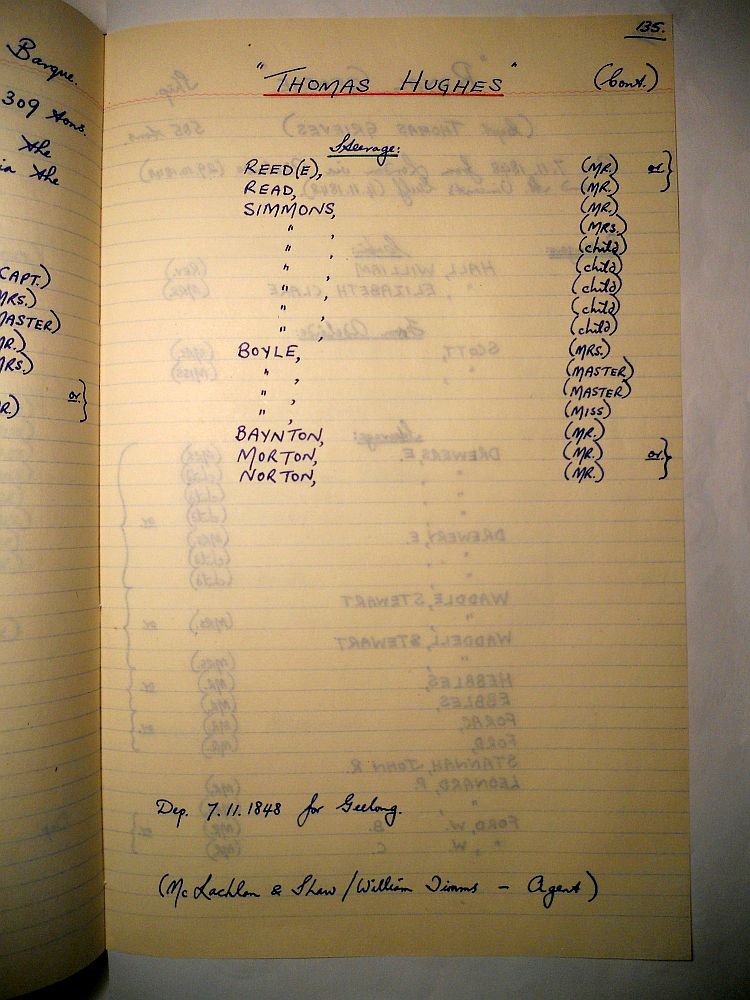 Barque.
309 tons.
the
the
(CAPT.)
MRS.)
MASTER)
MR.)
MRS.)
or
R.)
135.
"THOMAS HUGHES" (Cont.)
Steerage:
REED(E), (MR.) or
READ, (MR.)
SIMMONS, (MR.)
" , (MRS.)
" , (child)
" , (child)
" , (child)
" , (child)
" , (child)
BOYLE, (MRS.)
" , (MASTER)
" , (MASTER)
" , (MISS)
BAYNTON, (MR.)
MORTON, (MR.) or
NORTON, (MR.)
Dep. 7.11.1848 for Geelong.
(McLachlan & Shaw/William Timms - Agent)